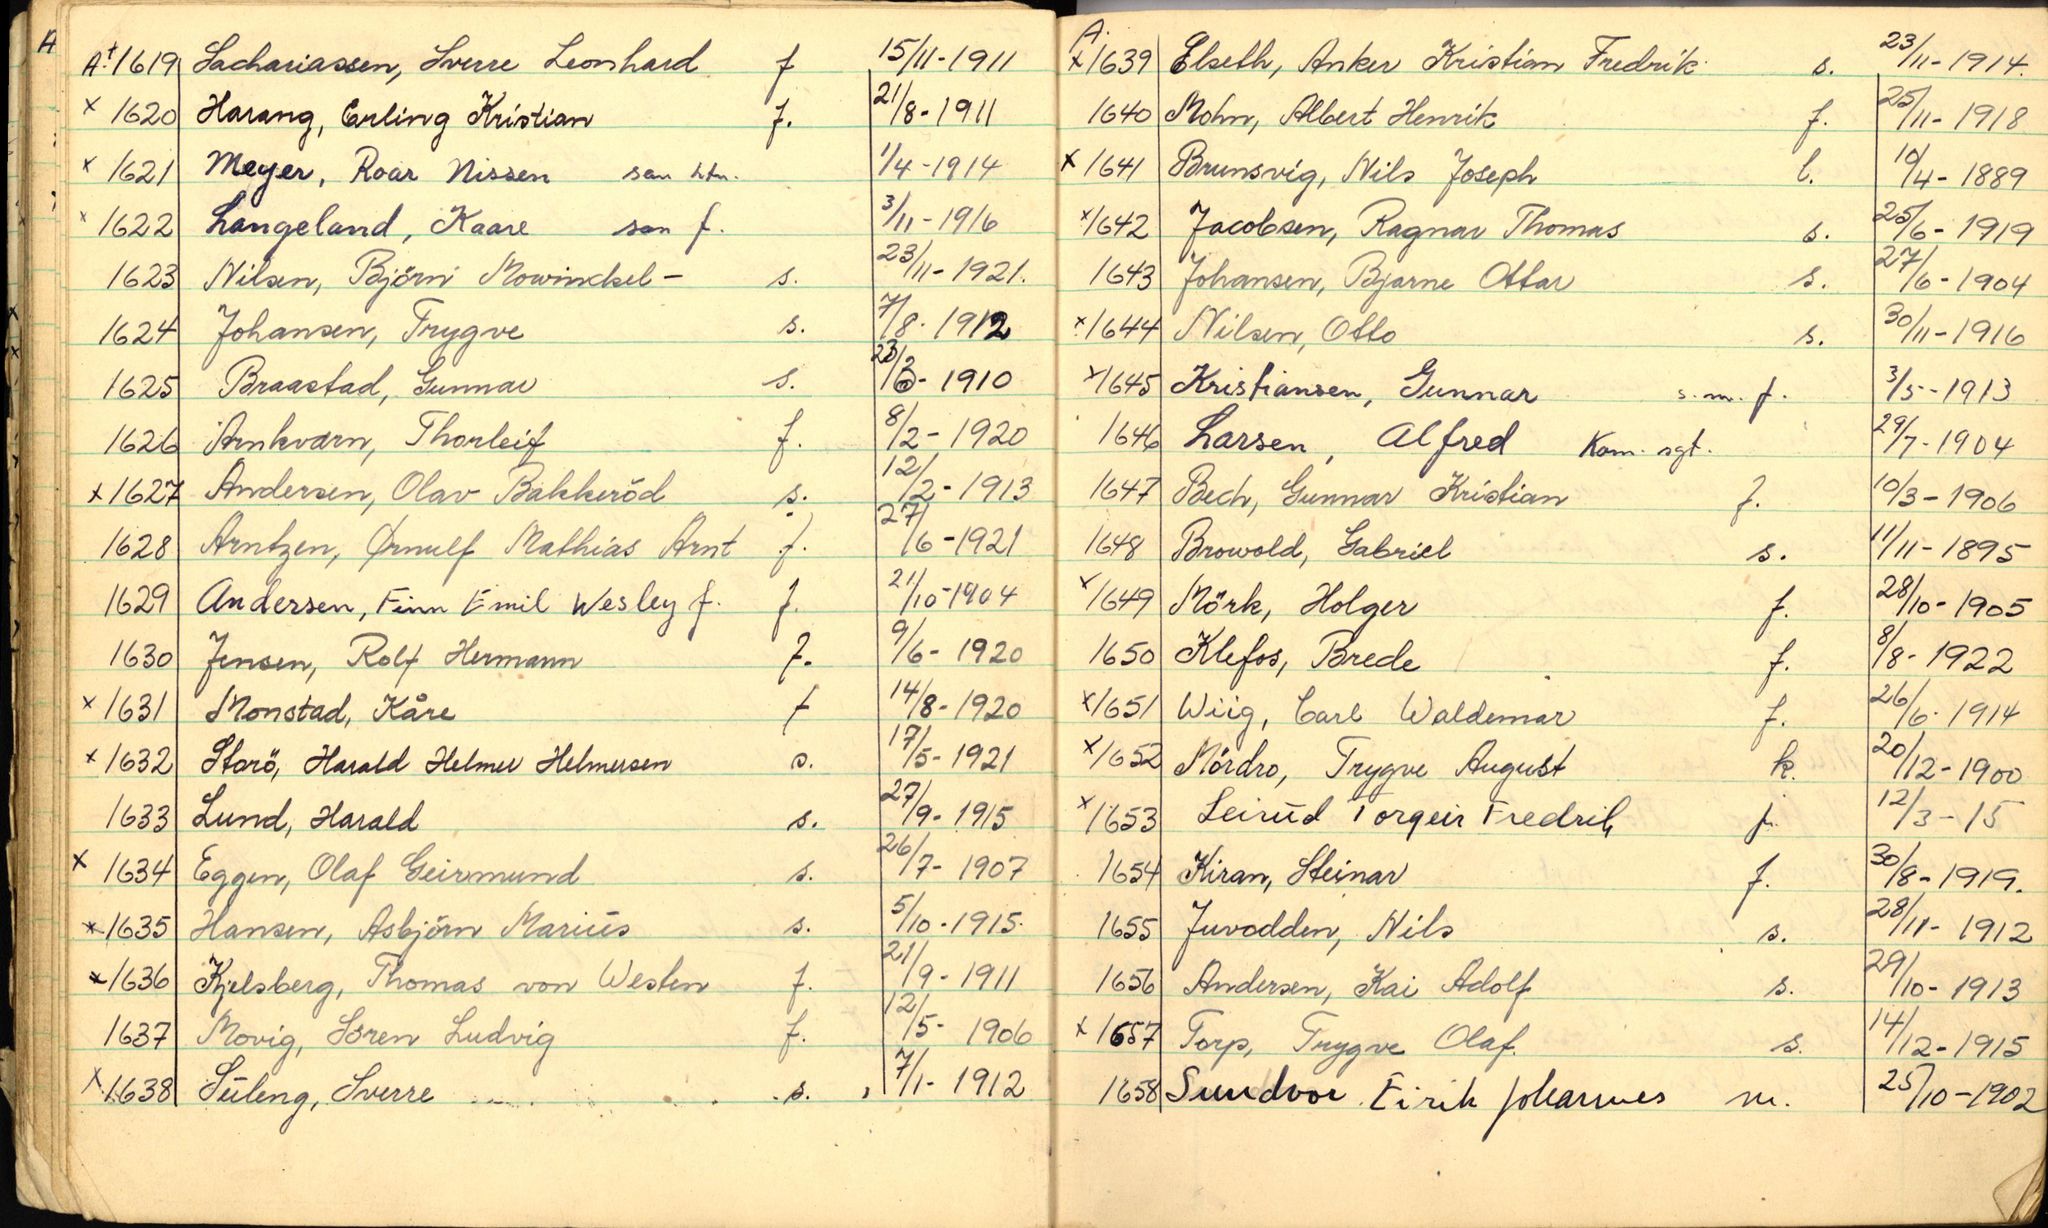 A
A.+ 1619 Sachariassen, Sverre Leonhard f 15/11-1911
x 1620 Harang, Erling Kristian f. 21/8-1911
x 1621 Meyer, Roar Nissen san 1/4-1914
x 1622 Langeland, Kaare san f. 3/11-1916
1623 Nilsen, Björn Mowinckel- s. 23/11-1921.
1624 Johansen, Trygve s. 7/8-1912
1625 Braastad, Gunnar s. 1910
1626 Arnkværn, Thorleif f. 8/2-1920
x 1627 Andersen, Olav Bakkeröd s. 12/2-1913
1628 Arntzen, Ørnulf Mathias Arnt f. 27/6-1921
1629 Andersen, Finn Emil Wesley f. f. 21/10-1904
1630 Jensen, Rolf Hermann f. 9/6-1920
x 1631 Monstad, Kåre f 14/8-1920
x 1632 Storö, Harald Helmer Helmersen s. 17/5-1921
1633 Lund, Harald s. 27/9-1915
x 1634 Eggen, Olaf Geirmund s. 26/7-1907
x 1635 Hansen, Asbjörn Marius s. 5/10-1915.
x 1636 Kjelsberg, Thomas von Westen f. 21/9-1911
1637 Movig, Sören Ludvig f. 12/5-1906
x 1638 Süleng, Sverre s. 7/1-1912
A.
x 1639 Elseth, Anker Kristian Fredrik s. 23/11-1914.
1640 Mohn, Albert Henrik f. 25/11-1918
x 1641 Brunsvig, Nils Joseph l. 10/4-1889
x 1642 Jacobsen, Ragnar Thomas s. 25/6-1919
1643 Johansen, Bjarne Ottar s. 27/6-1904
x 1644 Nilsen, Otto s. 30/11-1916
x 1645 Kristiansen, Gunnar s.m. f. 3/5-1913
1646 Larsen, Alfred Kom. sgt. 29/7-1904
1647 Bech, Gunnar Kristian f. 10/3-1906
1648 Browold, Gabriel s. 11/11-1895
x 1649 Mörk, Holger f. 28/10-1905
1650 Klefos, Brede f. 8/8-1922
x 1651 Wiig, Carl Waldemar f. 26/6-1914
x 1652 Mördro, Trygve August k. 20/12-1900
x 1653 Leirud Torgeir Fredrik f. 12/3-15
1654 Kiran, Steinar f. 30/8-1919.
1655 Juvodden, Nils s. 28/11-1912
1656 Andersen, Kai Adolf s. 29/10-1913
x 1657 Torp, Trygve Olaf. s. 14/12-1915
1658 Sundvor Eirik Johannes m. 25/10-1902